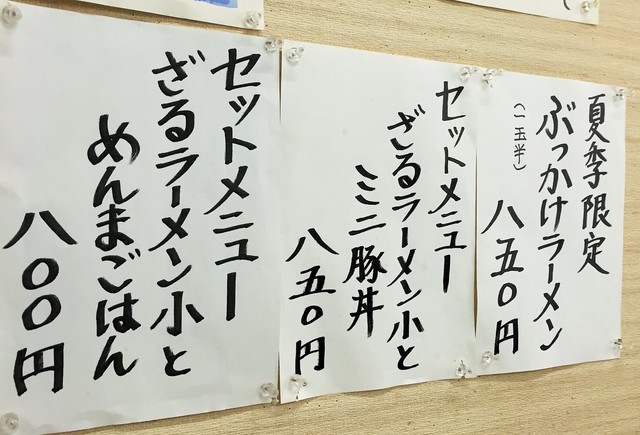 夏季限定
ぶっかけラーメン
(一玉半)
八五〇円
セットメニュー
ざるラーメン小と
ミニ豚丼
八五〇円
セットメニュー
ざるラーメン小と
めんまごはん
八〇〇円